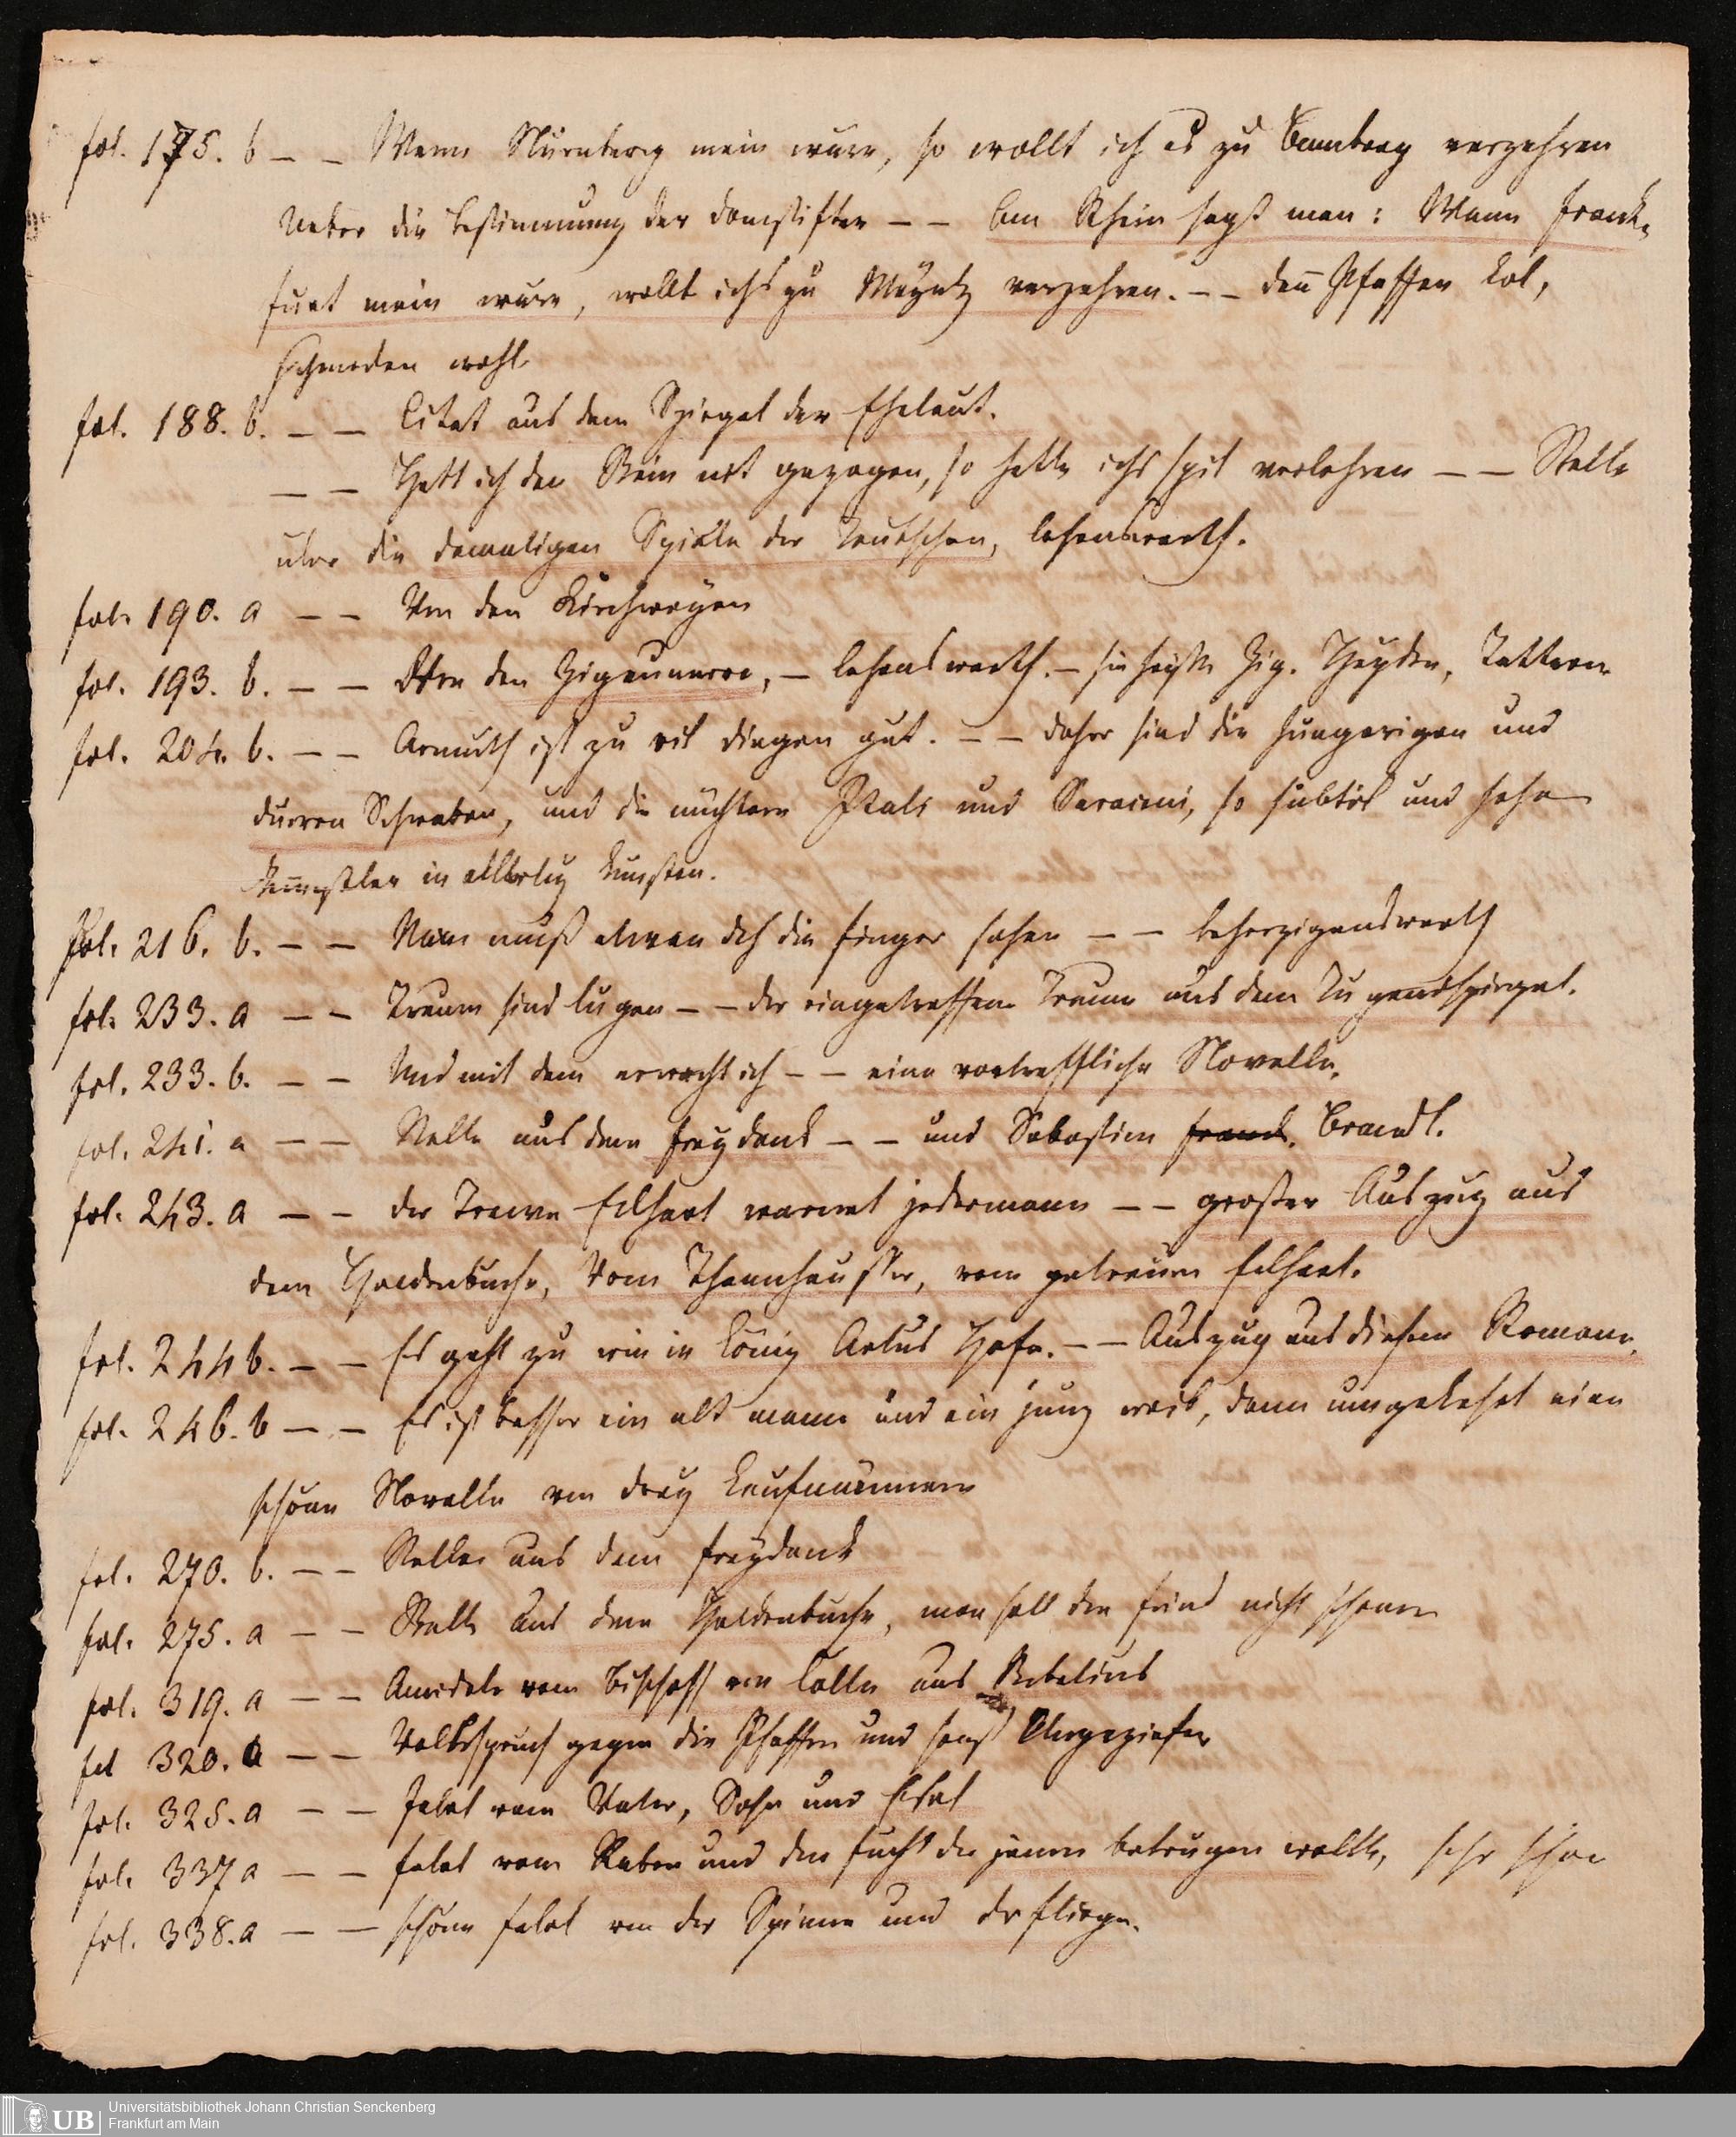 fol. 175. b — — Wenn Nürnberg mein were, so wollt ich es zu Bamberg verzehren
Ueber die Bestimmung der Domstifter — — Am Rhein sagt man: Wann Frank-
furt mein were, wollt ichs zu Meyntz verzehren. — — den Pfaffen kol,
schmecken wohl
fol. 188. b. — — Citat aus dem Spiegel der Eheleut.
— — Hett ich den Stein nit gezogen, so hette ichs spil verlohren — — Stelle
über die damaligen Spiele der Teutschen, lesenswerth.
fol. 190. a — — Von den Kirchweyen
fol. 193. b. — — Von den Zigeunern, — lesenswerth. — sie heißen Zig. Heyden, Tattern
fol. 204. b. — — Armuth ist zu vil dingen gut. — — daher sind die hungerigen und
durren Schwaben, und die nüchtern Itali und Saraceni, so subtil und hohe
Kunstler in allerley Kunsten.
Fol. 216. b. — — Man muß etwan dch die finger sehen — — beherzigenswerth
fol. 233. a — — Treum sind lugen — — der eingetroffene Traum aus dem Tugendspiegel.
fol. 233. b. — — Und mit dem erwacht ich — — eine vortreffliche Novelle.
fol. 241. a — — Stelle aus dem Freydank — — und Sebastian Franck. Brandt.
fol. 243. a — — Der Trewe Eckhart warnet jedermann — — großer Auszug aus
dem Heldenbuche, vom Thannhäusser, vom getreuen Eckhart.
fol. 244 b. — — Es geht zu wie in König Artus Hofe. — — Auszug aus diesem Romane.
fol. 246. b — — Es ist besser ein alt mann und ein jung weib, dann umgekehrt eine
schöne Novelle von drey Kaufmännern
fol. 270. b. — — Stelle aus dem Freydank
fol. 275. a — — Stelle aus dem Heldenbuche, man soll den feind nicht schonen
fol. 319. a — — Anecdote vom Bischoff von Cölln aus Bebelius
fol 320. a — — Volksspruch gegen die Pfaffen und sonst Ungeziefer
fol. 325. a — — Fabel vom Vater, Sohn und Esel
fol. 337 a — — Fabel vom Raben und dem fuchs der jenen betrugen wollte, sehr schön
fol. 338. a — — schöne Fabel von der Spinne und der fliege.
UB
Universitätsbibliothek Johann Christian Senckenberg
Frankfurt am Main